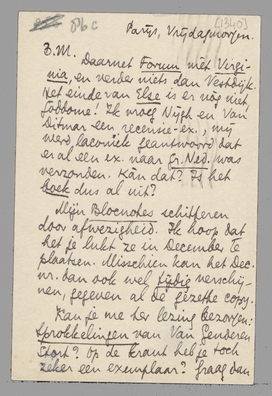 [1340]
86c
Parijs, Vrijdagmorgen.
B.M.
Daarnet Forum met Virgi-
nia, en verder niets dan Vestdijk.
Het einde van Else is er nog niet,
Goddome! Ik vroeg Nijgh en Van
Ditmar een recensie-ex., mij
werd laconiek geantwoord dat
er al een ex. naar Gr. Ned. was
verzonden. Kàn dat? Is het
boek dus al uit?
Mijn Blocnotes schitteren
door afwezigheid. Ik hoop dat
het je lukt ze in December te
plaatsen. Misschien kan het Dec.
nr. dan ook wel tijdig verschij-
nen, gegeven al de gezette copy.
Kan je me ter lezing bezorgen:
Sprokkelingen van Van Genderen
Stort? Op de krant heb je toch
zeker een exemplaar? Graag dan